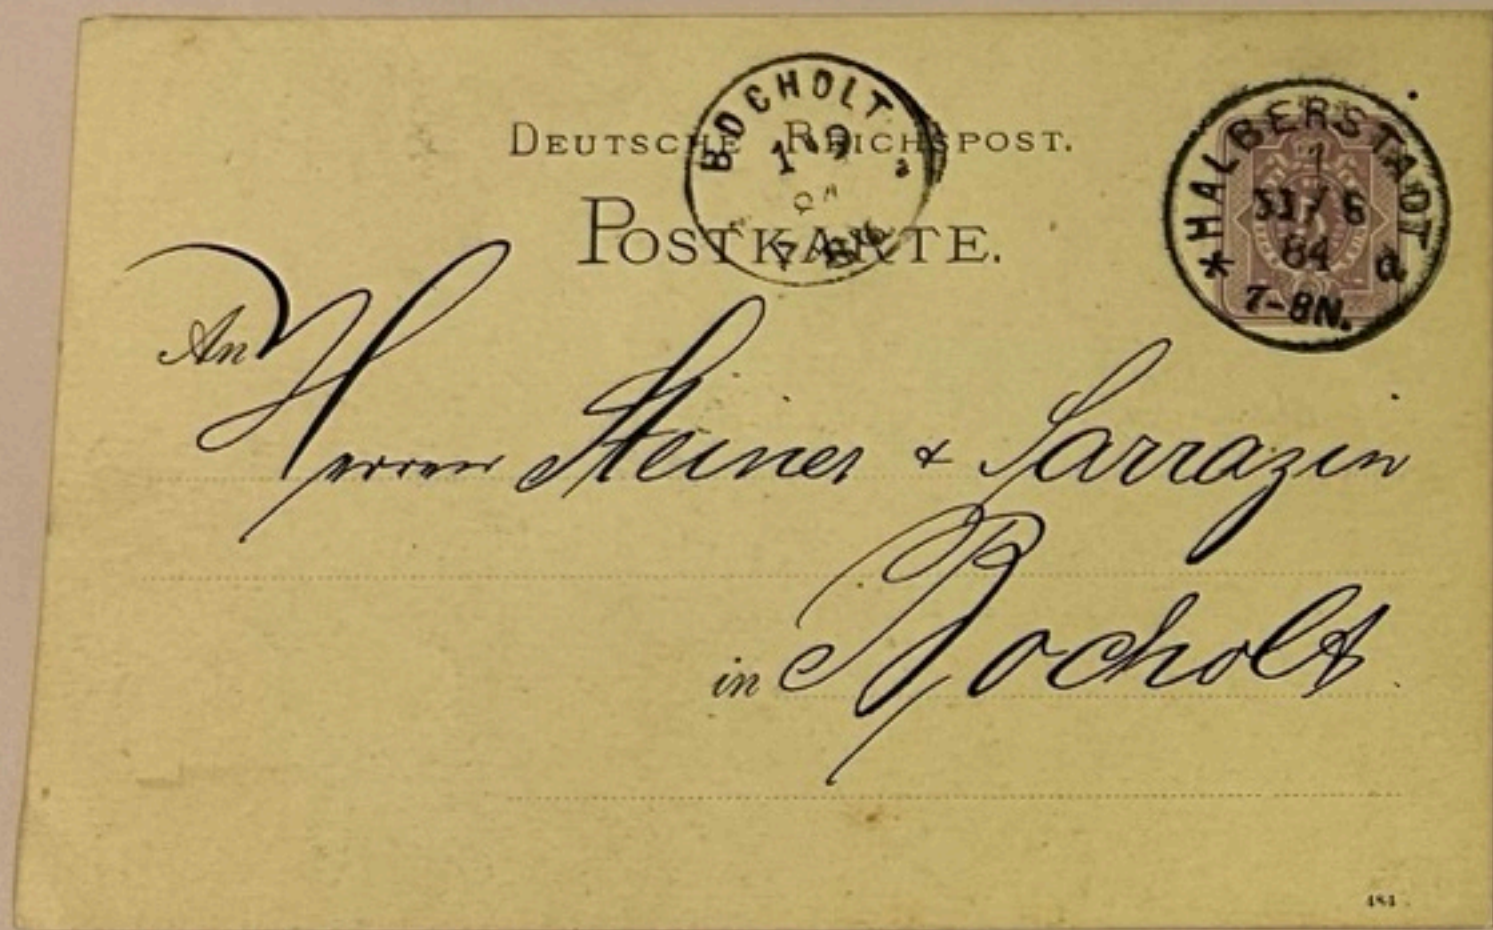 DEUTSCHE REICHSPOST.
POSTKARTE.
BOCHOLT
HALBERSTADT
1
84 a
7-8N.
An Herren Steiner & Sarrazin
in Bocholt
484